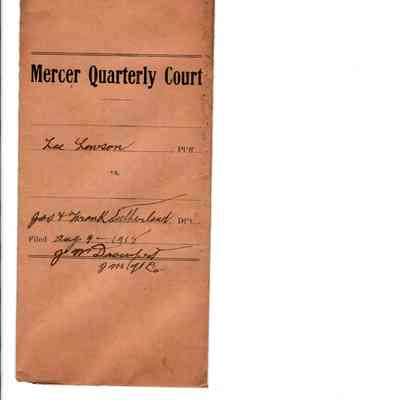 Mercer Quarterly Court
Lee Lowson Pl'ff
vs.
Jas & Frank Sutherland Df't
Filed Aug 9 - 1918
J W Davenport